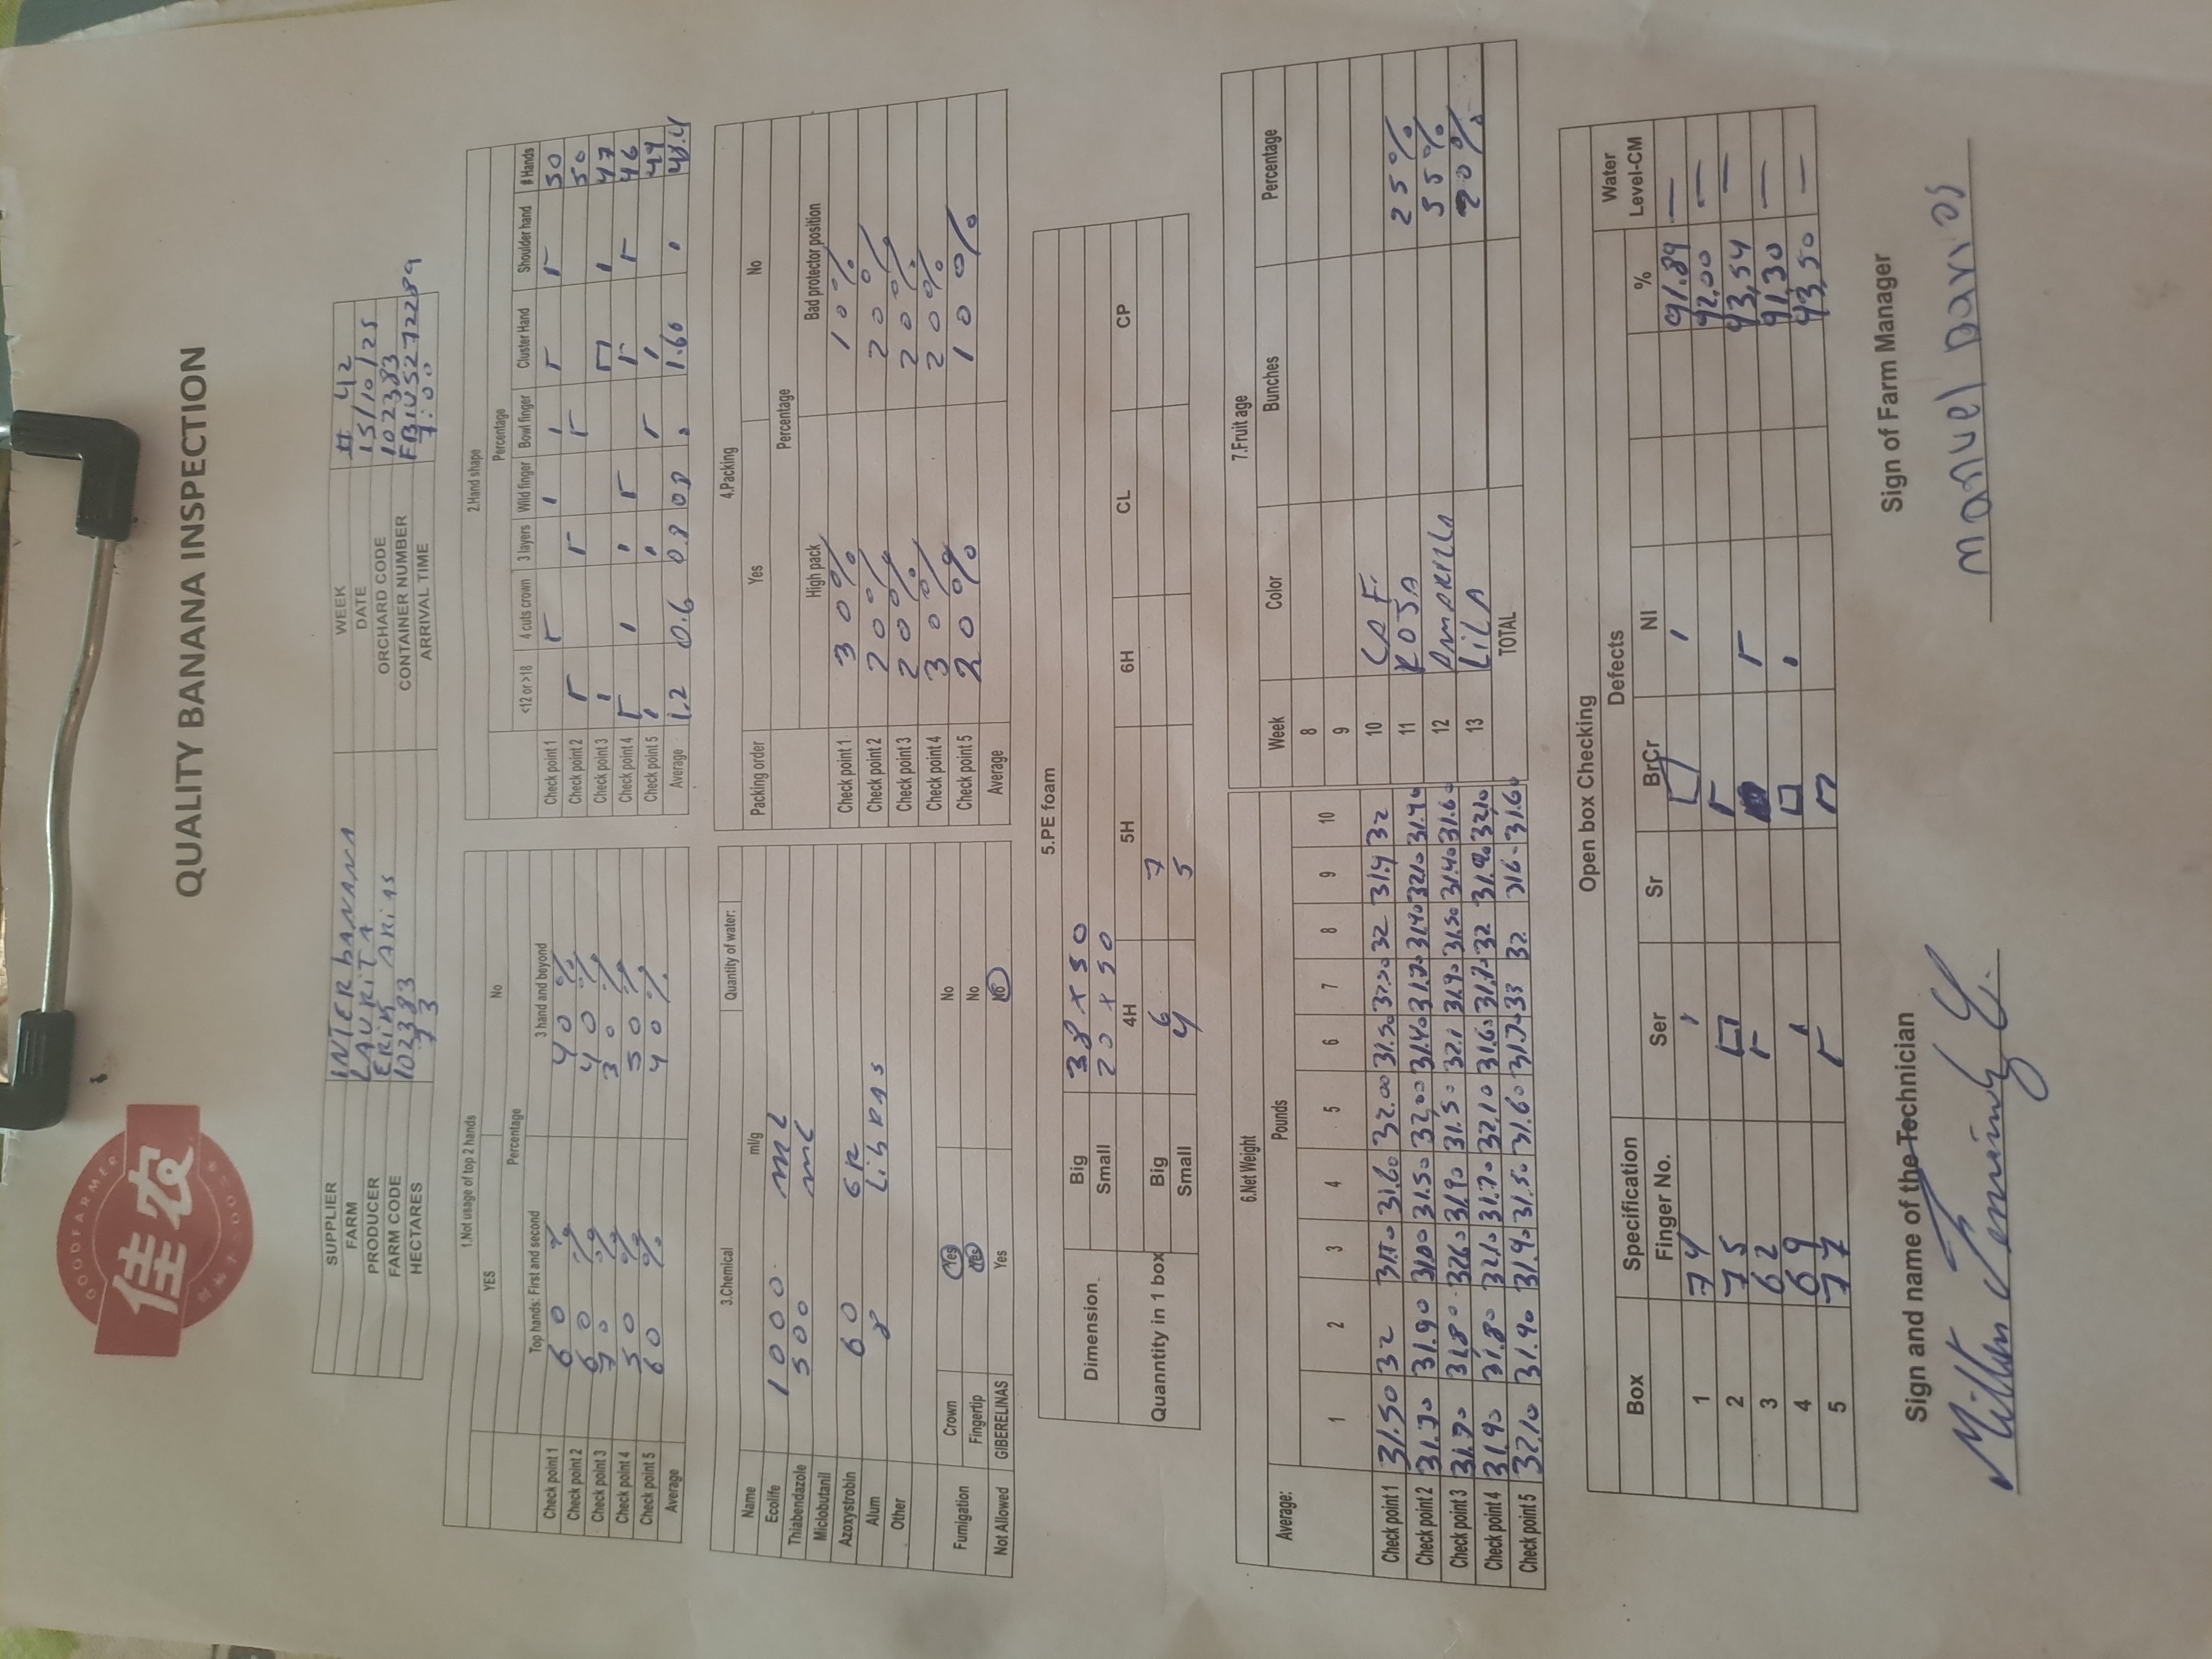 GOODFARMER
佳农
QUALITY BANANA INSPECTION
SUPPLIER INTERbANANA WEEK # 42
FARM LAURITA DATE 15/10/25
PRODUCER ERIK ARIAS ORCHARD CODE 102383
FARM CODE 102383 CONTAINER NUMBER
HECTARES 73 ARRIVAL TIME 7:00
1.Not usage of top 2 hands
YES No
Percentage
Top hands: First and second 3 hand and beyond
Check point 1 60 % 40 %
Check point 2 60 % 40 %
Check point 3 70 % 30 %
Check point 4 50 % 50 %
Check point 5 60 % 40 %
Average
2.Hand shape
Percentage
<12 or >18 4 cuts crown 3 layers Wild finger Bowl finger Cluster Hand Shoulder hand # Hands
Check point 1 50
Check point 2 50
Check point 3 47
Check point 4 46
Check point 5 49
Average 1.2 0.6 0.8 08 1.60
3.Chemical Quantity of water:
Name ml/g
Ecolife 1000 mL
Thiabendazole 500 mL
Miclobutanil
Azoxystrobin 60 GR
Alum 8 LibRAS
Other
Fumigation Crown Yes No
Fingertip Yes No
Not Allowed GIBERELINAS Yes No
4.Packing
Packing order Yes No
Percentage
High pack Bad protector position
Check point 1 30% 10%
Check point 2 20% 20%
Check point 3 20% 20%
Check point 4 30% 20%
Check point 5 20% 10%
Average
5.PE foam
Dimension Big 38 x 50
Small 20 x 50
4H 5H 6H CL CP
Quanntity in 1 box Big 6 7
Small 4 5
6.Net Weight
Average: Pounds
1 2 3 4 5 6 7 8 9 10
Check point 1 31.50 32 31.60 32.00 31.50 32 31.4 32
Check point 2 31.70 31.90 31.50 32,00 31.40 31.70 31.40
Check point 3 31.70 31.80 31.90 31.50 32.1 31.90 31.50 31.40 31.60
Check point 4 31.90 31.80 32.10 31.70 32.10 31.60 31.70 32 32.10
Check point 5 32.10 31.90 31.90 31.50 31.60 31.7 33 32 31.60
7.Fruit age
Week Color Bunches Percentage
8
9
10 CAF.
11 ROJA 25%
12 AMARILLA 55%
13 LILA 20%
TOTAL
Open box Checking
Box Specification Defects Water Level-CM
Finger No. Ser Sr BrCr NI %
1 74 91.89 —
2 75 92,00 —
3 62 93,54 —
4 69 91,30 —
5 77 93,50 —
Sign and name of the Technician Sign of Farm Manager
Milton manuel Barrios